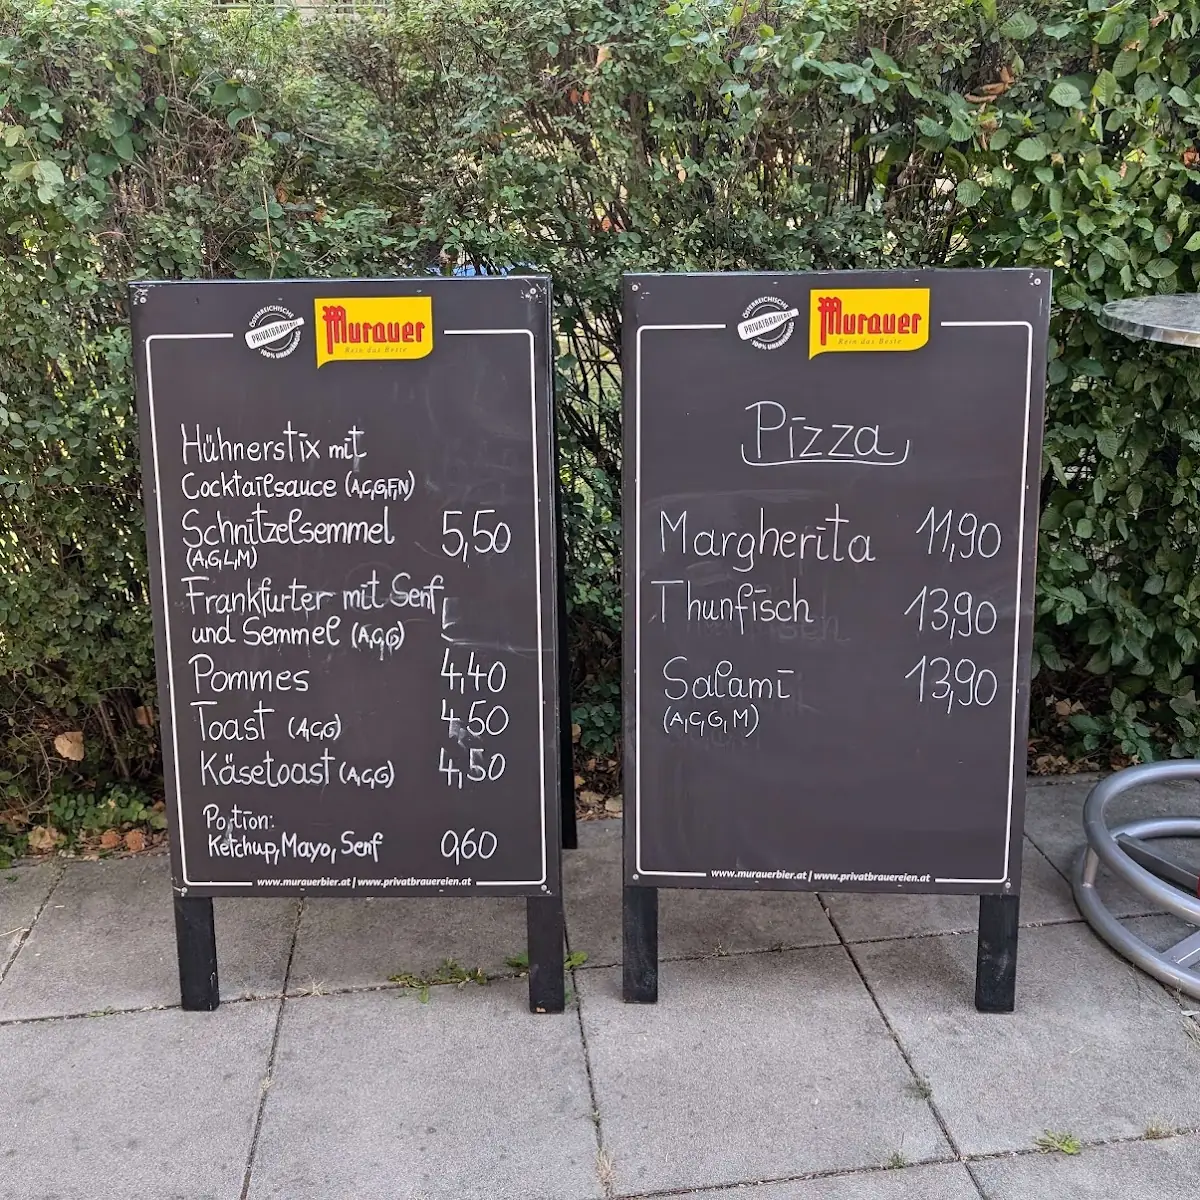 ÖSTERREICHISCHE
PRIVATBRAUEREI
100% UNABHÄNGIG
Murauer
Rein das Beste
Hühnerstix mit
Cocktailsauce (A,C,G,F,N)
Schnitzelsemmel 5,50
(A,G,L,M)
Frankfurter mit Senf
und Semmel (A,C,G)
Pommes 4,40
Toast (A,C,G) 4,50
Käsetoast (A,C,G) 4,50
Portion:
Ketchup, Mayo, Senf 0,60
www.murauerbier.at | www.privatbrauereien.at
ÖSTERREICHISCHE
PRIVATBRAUEREI
100% UNABHÄNGIG
Murauer
Rein das Beste
Pizza
Margherita 11,90
Thunfisch 13,90
Salami 13,90
(A,C,G,M)
www.murauerbier.at | www.privatbrauereien.at